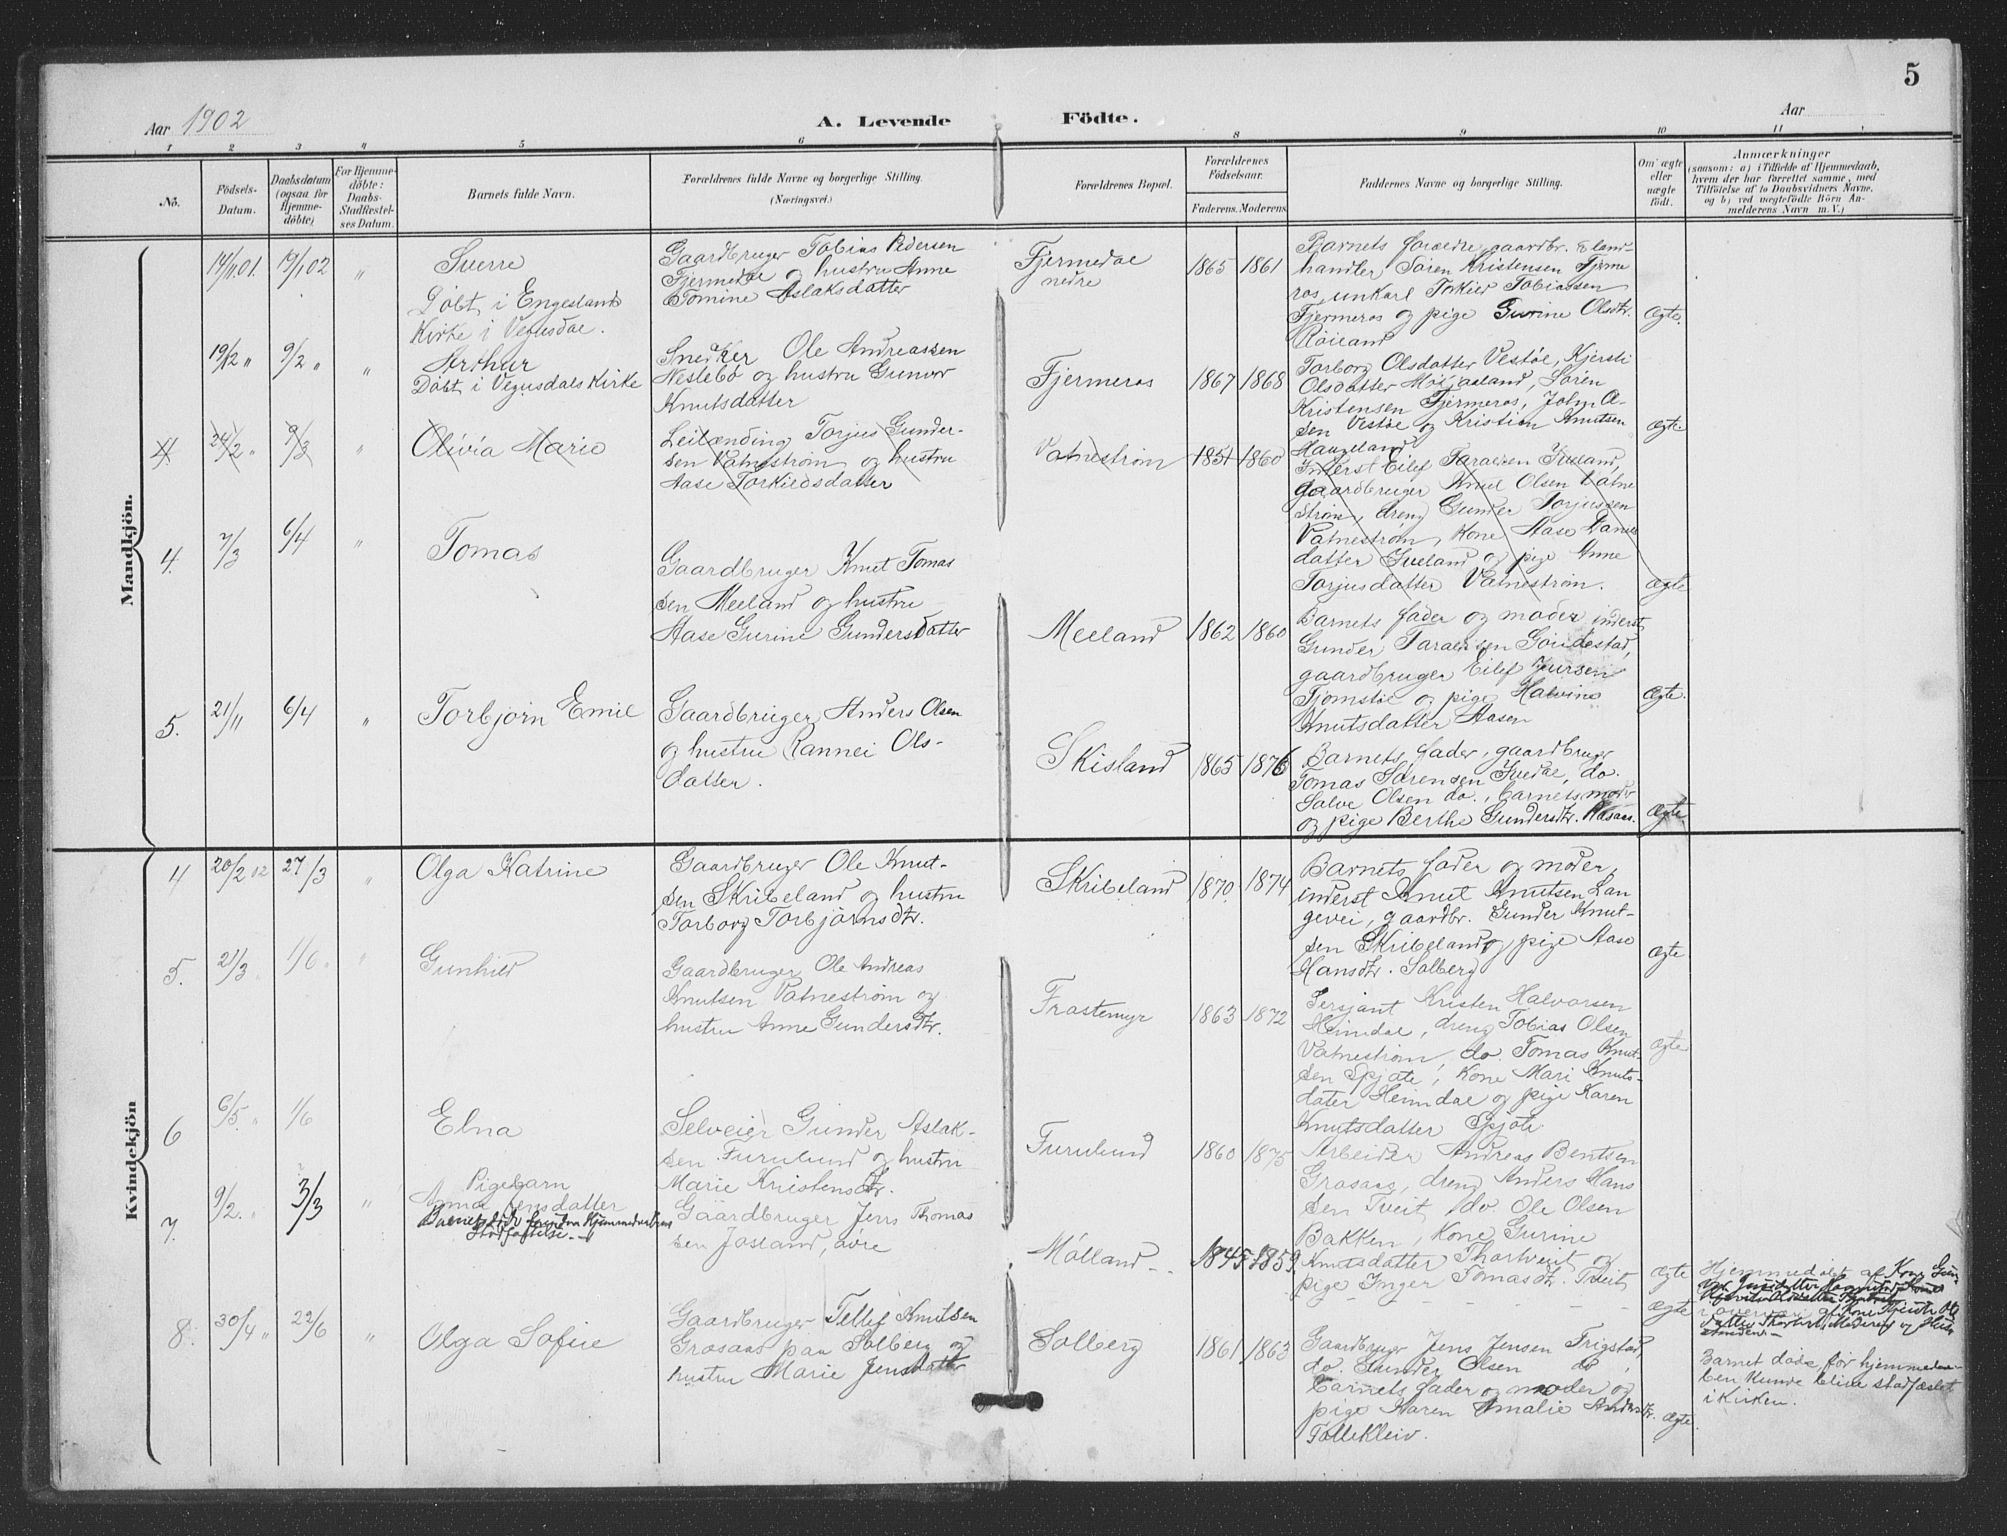 5
Aar 1902
A. Levende Födte.
Aar
1 2 3 4 5 6 8 9 10 11
No.
Födsets-Datum.
Daabsdatum (ogsaa for Hjemme-döbte)
For Hjemme-döbte: Daabs-Stadfæstel-ses Datum.
Barnets fulde Navn.
Forældrenes fulde Navne og borgerlige Stilling.
(Næringsvei.)
Forældrenes Bopæl.
Forældrenes Födselsaar.
Faderens. Moderens
Faddernes Navne og borgerlige Stilling.
Om ægte eller uægte födt.
Anmærkninger
(saasom: a) i Tilfælde af Hjemmedaab, hvem der har forrettet samme, med Tilföielse af to Daabsvidners Navne, og b) ved uægtefödte Börn Anmelderens Navn m. V.)
Mandkjön.
14/11 01. 19/1 02 "
Sverre
Döbt i Engeslands
Kirke i Vegusdal.
Gaardbruger Tobias Pedersen
Fjermedal og hustru Anne
Tomine Aslaksdatter
Fjermedal
nedre
1865 1861
Barnets forældre, gaardbr. & land-
handler Sören Kristensen Fjerme
ros, unkarl Torkild Tobiassen
Fjermeros og pige Gurine Olsdtr.
Röiland
Ægte.
19/12 " 9/2 " "
Arthur
Döbt i Vegusdals Kirke
Snedker Ole Andreassen
Neslebö og hustru Gunvor
Knutsdatter
Fjermeros
1867 1868
Torborg Olsdatter Vestöl, Kjersti
Olsdatter Mölland, Sören
Kristensen Fjermeros, John O-
sen Vestöl og Kristian Knutsen
Haugeland
Ægte.
4. 24/2 " 9/3 "
Olivia Marie
Leilænding Torjus Gunder-
sen Vatneström og hustru
Aase Torkildsdatter
Vatneström
1851 1860
Inderst Eilef Taraldsen Iveland,
gaardbruger Knut Olsen Vatne
ström, dreng Gunder Torjussen
Vatneström, Kone Aase Daniels
datter Iveland og pige Anne
Torjusdatter Vatneström.
Ægte
4. 7/3 6/4 "
Tomas
Gaardbruger Knut Tomas
sen Meeland og hustru
Aase Gurine Gundersdatter
Meeland
1862 1860
Barnets fader og moder, inderst
Gunder Taraldsen
gaardbruger Eilef
og pige
Knutsdatter Aasen
Ægte.
5. 21/11 6/4 "
Torbjörn Emil
Gaardbruger Anders Olsen
og hustru Rannei Ols-
datter.
Skisland
1865 1876
Barnets fader, gaardbruger
Tomas Sörensen Ivedal, do.
Salve Olsen do., barnets moder
og pige Berthe Gundersdtr.
Ægte
Kvindekjön
4 20/2 02 27/3 "
Olga Katrine
Gaardbruger Ole Knut-
sen Skribeland og hustru
Torborg Torbjörnsdtr.
Skribeland
1870. 1874
Barnets fader og moder,
inderst Knut Knutsen Lan
gevei, gaardbr. Gunder Knut-
sen Skribeland og pige Aase
Hansdtr. Solberg
Ægte
5. 21/3 " 1/6 " "
Gunhild
Gaardbruger Ole Andreas
Knutsen Vatneström og
hustru Anne Gundersdtr.
Frostemyr
1863 1872
Sersjant Kristen Halvorsen
Heimdal, dreng Tobias Olsen
Vatneström, do. Tomas Knut-
sen Gjate, Kone Mari Knuts-
dater Heimdal og pige Karen
Knutsdatter
Ægte
6 6/5. " 1/6
Elna
Selveier Gunder Aslak-
sen Furulund og hustru
Marie Kristensdtr.
Furulund
1860 1875
Arbeider Andreas Bentsen
Grosaas, dreng Anders Hans
sen Tveit, do. Ole Olsen
Bakken, Kone Gurine
Knutsdatter Thortveit og
pige Inger Tomasdtr. Tveit
Ægte
7. 9/2. " 3/3 "
Pigebarn
Anna Jensdatter
Barnet döde forinden Hjemmedaabens
Stadfæstelse.
Gaardbruger Jens Thomas
sen Josland, övre
Mölland
1845 1859
Ægte
Hjemmedöbt af Kone
i overvær af Kone
Barnet döde, för hjemmedaa-
ben kunde blive stadfæstet
i kirken.
8. 30/4 " 22/6 "
Olga Sofie
Gaardbruger Tellef Knutsen
Grosaas paa Solberg og
hustru Marie Jensdatter
Solberg
1861 1863
Gaardbruger Jens Jensen Frigstad,
do. Gunder Olsen do,
barnets fader og moder og
pige Karen Amalie Andersdtr.
Tollekleiv.
Ægte